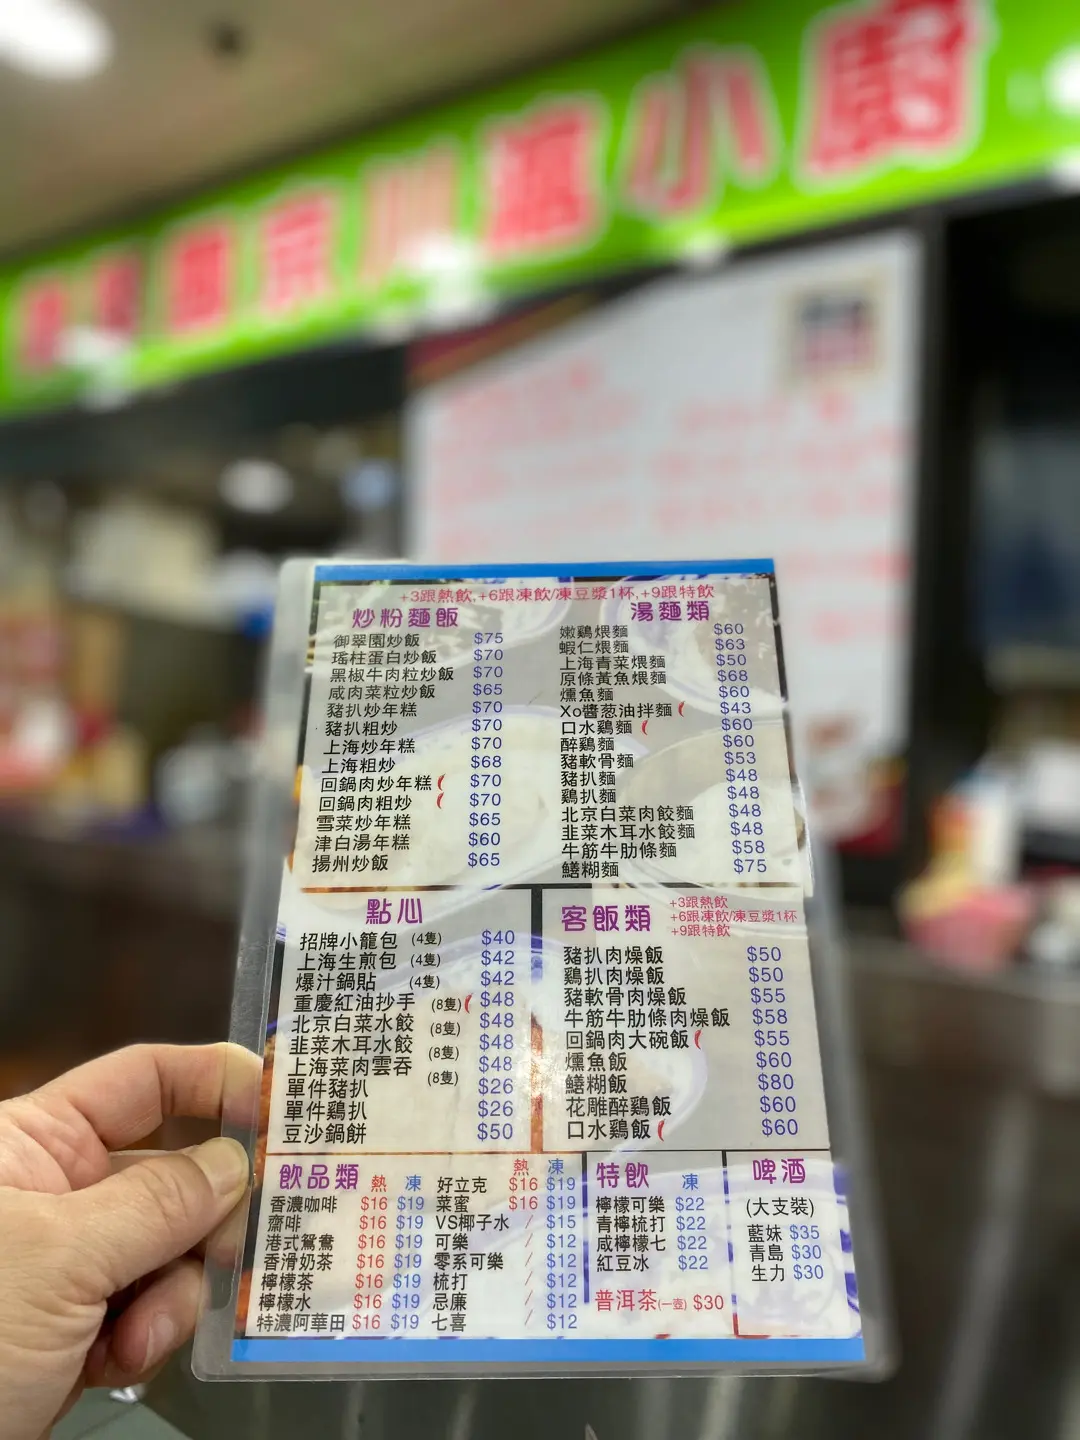 小廚
+3跟熱飲,+6跟凍飲/凍豆漿1杯,+9跟特飲
炒粉麵飯
御翠園炒飯 $75
瑤柱蛋白炒飯 $70
黑椒牛肉粒炒飯 $70
咸肉菜粒炒飯 $65
豬扒炒年糕 $70
豬扒粗炒 $70
上海炒年糕 $70
上海粗炒 $68
回鍋肉炒年糕 $70
回鍋肉粗炒 $70
雪菜炒年糕 $65
津白湯年糕 $60
揚州炒飯 $65
湯麵類
嫩鷄煨麵 $60
蝦仁煨麵 $63
上海青菜煨麵 $50
原條黃魚煨麵 $68
燻魚麵 $60
Xo醬葱油拌麵 $43
口水鷄麵 $60
醉鷄麵 $60
豬軟骨麵 $53
豬扒麵 $48
鷄扒麵 $48
北京白菜肉餃麵 $48
韭菜木耳水餃麵 $48
牛筋牛肋條麵 $58
鱔糊麵 $75
點心
招牌小籠包 (4隻) $40
上海生煎包 (4隻) $42
爆汁鍋貼 (4隻) $42
重慶紅油抄手 (8隻) $48
北京白菜水餃 (8隻) $48
韭菜木耳水餃 (8隻) $48
上海菜肉雲吞 (8隻) $48
單件豬扒 $26
單件鷄扒 $26
豆沙鍋餅 $50
客飯類
+3跟熱飲
+6跟凍飲/凍豆漿1杯
+9跟特飲
豬扒肉燥飯 $50
鷄扒肉燥飯 $50
豬軟骨肉燥飯 $55
牛筋牛肋條肉燥飯 $58
回鍋肉大碗飯 $55
燻魚飯 $60
鱔糊飯 $80
花雕醉鷄飯 $60
口水鷄飯 $60
飲品類 熱 凍
香濃咖啡 $16 $19
齋啡 $16 $19
港式鴛鴦 $16 $19
香滑奶茶 $16 $19
檸檬茶 $16 $19
檸檬水 $16 $19
特濃阿華田 $16 $19
熱 凍
好立克 $16 $19
菜蜜 $16 $19
VS椰子水 / $15
可樂 / $12
零系可樂 / $12
梳打 / $12
忌廉 / $12
七喜 $12
特飲 凍
檸檬可樂 $22
青檸梳打 $22
咸檸檬七 $22
紅豆冰 $22
普洱茶(一壺) $30
啤酒
(大支裝)
藍妹 $35
青島 $30
生力 $30